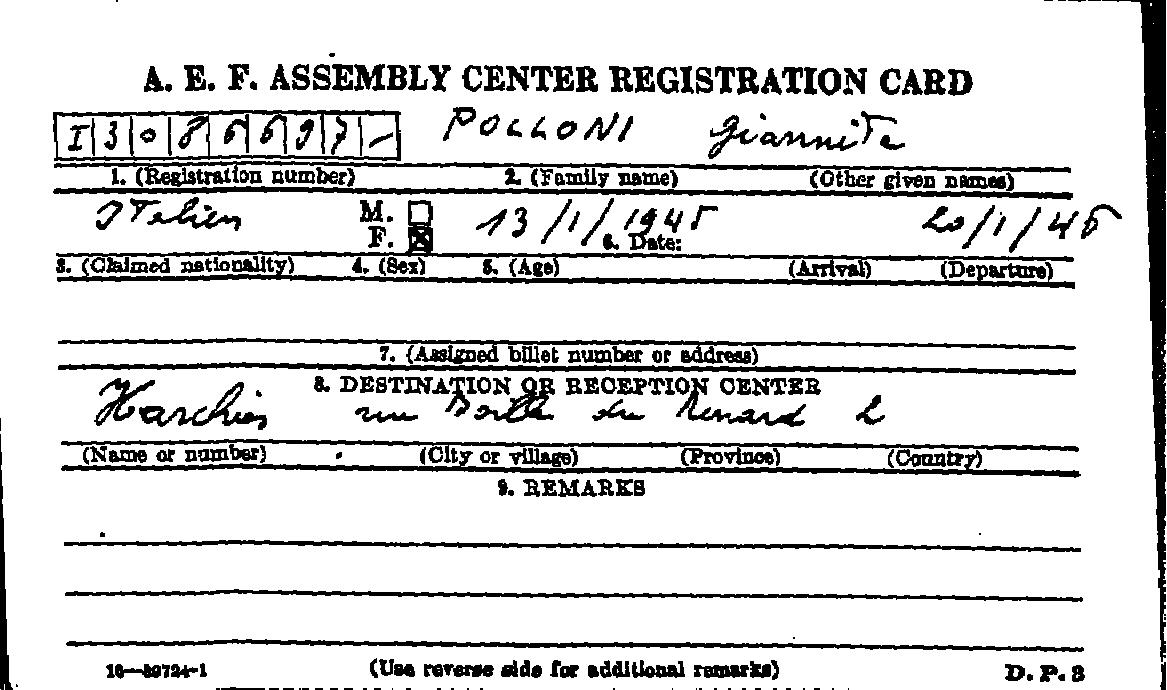 A. E. F. ASSEMBLY CENTER REGISTRATION CARD
I 3 0 8 6 6 9 7 - POLLONI Giannita
1. (Registration number) 2. (Family name) (Other given names)
Italien M. F. ☒ 13/1/1945 6. Date: 20/1/45
3. (Claimed nationality) 4. (Sex) 5. (Age) (Arrival) (Departure)
7. (Assigned billet number or address)
8. DESTINATION OR RECEPTION CENTER
Harchies rue du Renard 2
(Name or number) (City or village) (Province) (Country)
9. REMARKS
16—39724-1 (Use reverse side for additional remarks) D. P. 2